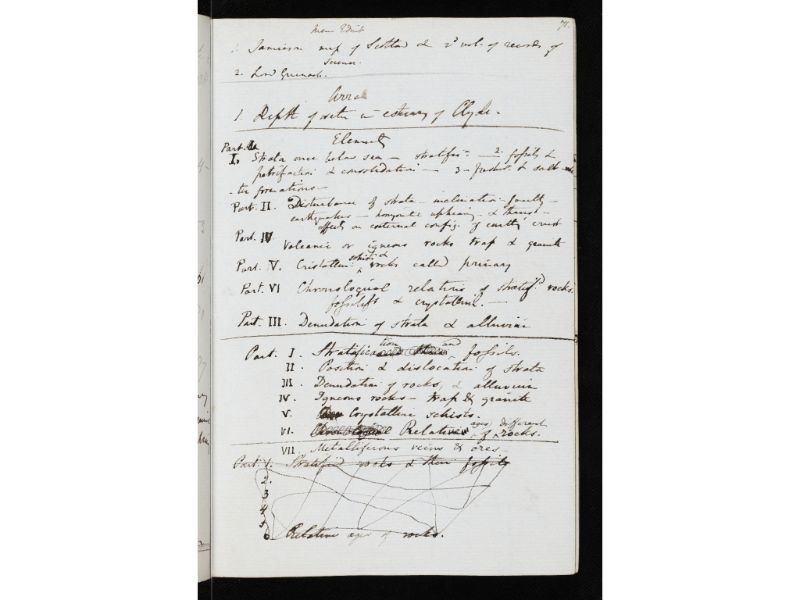 71
Mem Edinb
1. Jamieson map of Scotland & 2d vol. of records of
Science.
2. Lord Greenock.
Arran
1. Depth of water in estuary of Clyde.
Elements
Part. I. Strata once below sea - stratifn - 2. fossils &
petrifaction & consolidation - 3 - freshwr. & salt
ter formations -
Part. II. Disturbance of strata - inclination - faults -
earthquakes - upheavg. &
effects on external config. of earth's crust
Part. IV Volcanic or igneous rocks trap & granite
Part. V. Cristalline schists & rocks called primary
Part. VI Chronological relations of stratifd. rocks
fossilift & crystalline. -
Part. III. Denudation of strata & alluvium
Part. I. Stratification and fossils.
II Position & dislocation of strata
III. Denudation of rocks, & alluvium
IV. Igneous rocks - trap & granite
V. Crystalline schists.
VI. Relative ages of different rocks.
VII Metalliferous veins & ores -
Part 1. Stratified rocks & their fossils
2.
3
4
5
6 Relative ages of rocks.